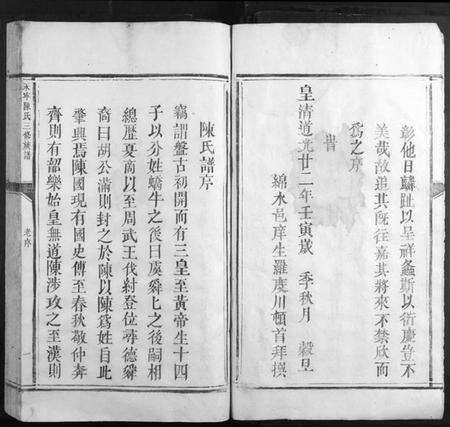 彰他日麟趾以呈祥螽斯以衍慶豈不
美哉故追其既往嘉其將來不禁欣而
為之序
旹
皇清道光廿二年壬寅歲 季秋月 穀旦
綿水邑庠生羅慶川頓首拜撰
陳氏譜序
竊謂盤古初開而有三皇至黃帝生十四
子以分姓蟜牛之後曰虞舜七之後嗣相
總歷夏商以至周武王伐紂登位尋德舜
裔曰胡公滿則封之於陳以陳為姓自此
肇興焉陳國現有國史傳至春秋敬仲奔
齊則有韶樂始皇無道陳涉攻之至漢則
陳氏三修族譜
老序